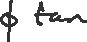 ϕ tan